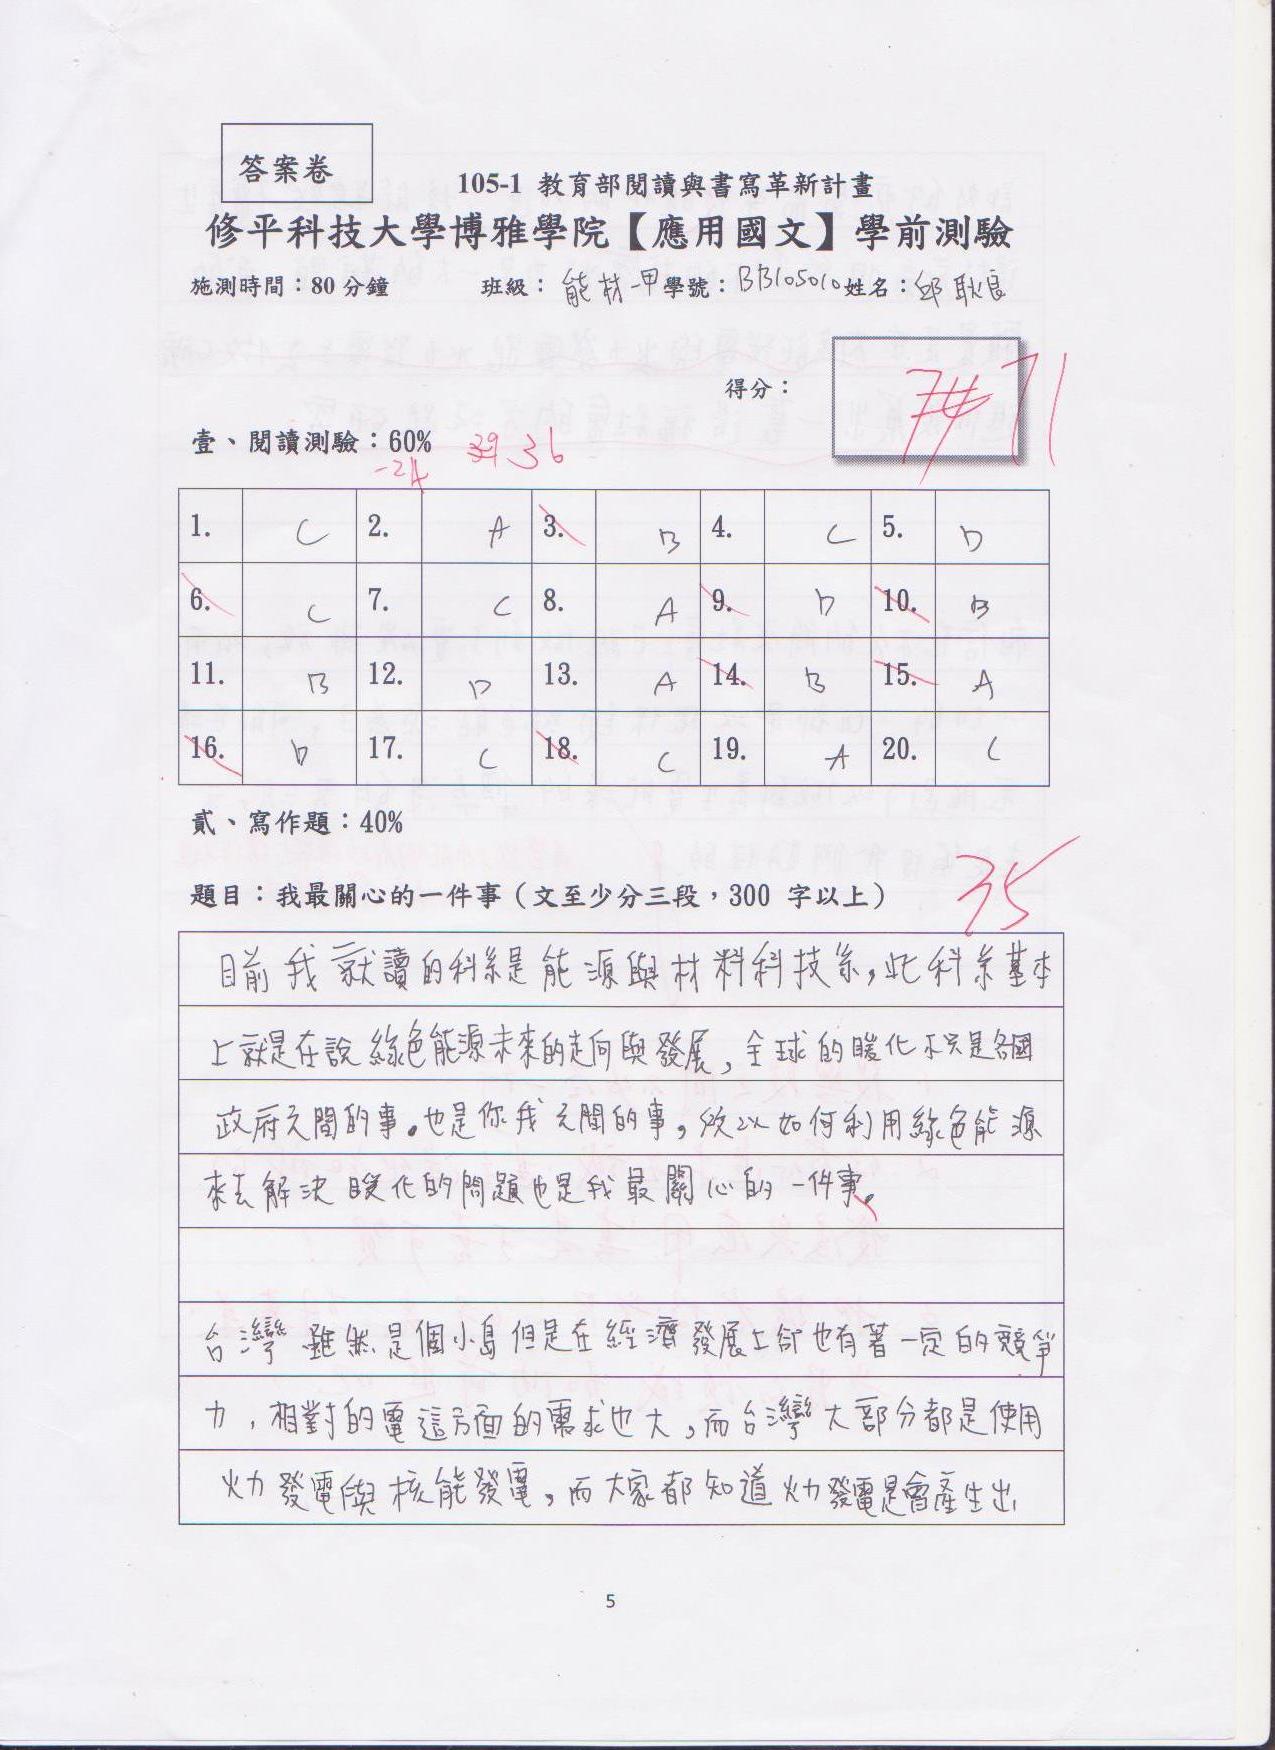 答案卷
105-1 教育部閱讀與書寫革新計畫
修平科技大學博雅學院【應用國文】學前測驗
施測時間：80 分鐘 班級：能材一甲 學號：BB105010 姓名：邱耿良
得分： 71
壹、閱讀測驗：60% 39 36
-24
1. C 2. A 3. B 4. C 5. D
6. C 7. C 8. A 9. D 10. B
11. B 12. D 13. A 14. B 15. A
16. D 17. C 18. C 19. A 20. C
貳、寫作題：40%
題目：我最關心的一件事（文至少分三段，300 字以上） 35
目前我就讀的科系是能源與材料科技系，此科系基本
上就是在說綠色能源未來的走向與發展，全球的暖化不只是各國
政府之間的事。也是你我之間的事，所以如何利用綠色能源
來去解決暖化的問題也是我最關心的一件事。
台灣雖然是個小島但是在經濟發展上卻也有著一定的競爭
力，相對的電這方面的需求也大，而台灣大部分都是使用
火力發電與核能發電，而大家都知道火力發電是會產生出
5